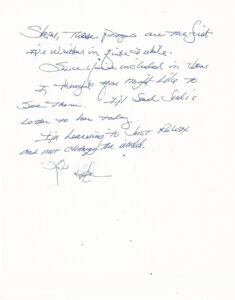 these pages are the first
I've written in quite a while.
Since you're included in them
I thought you might like to
see them. I'll send
letter to her today.
I'm learning to just relax
and not change the world.